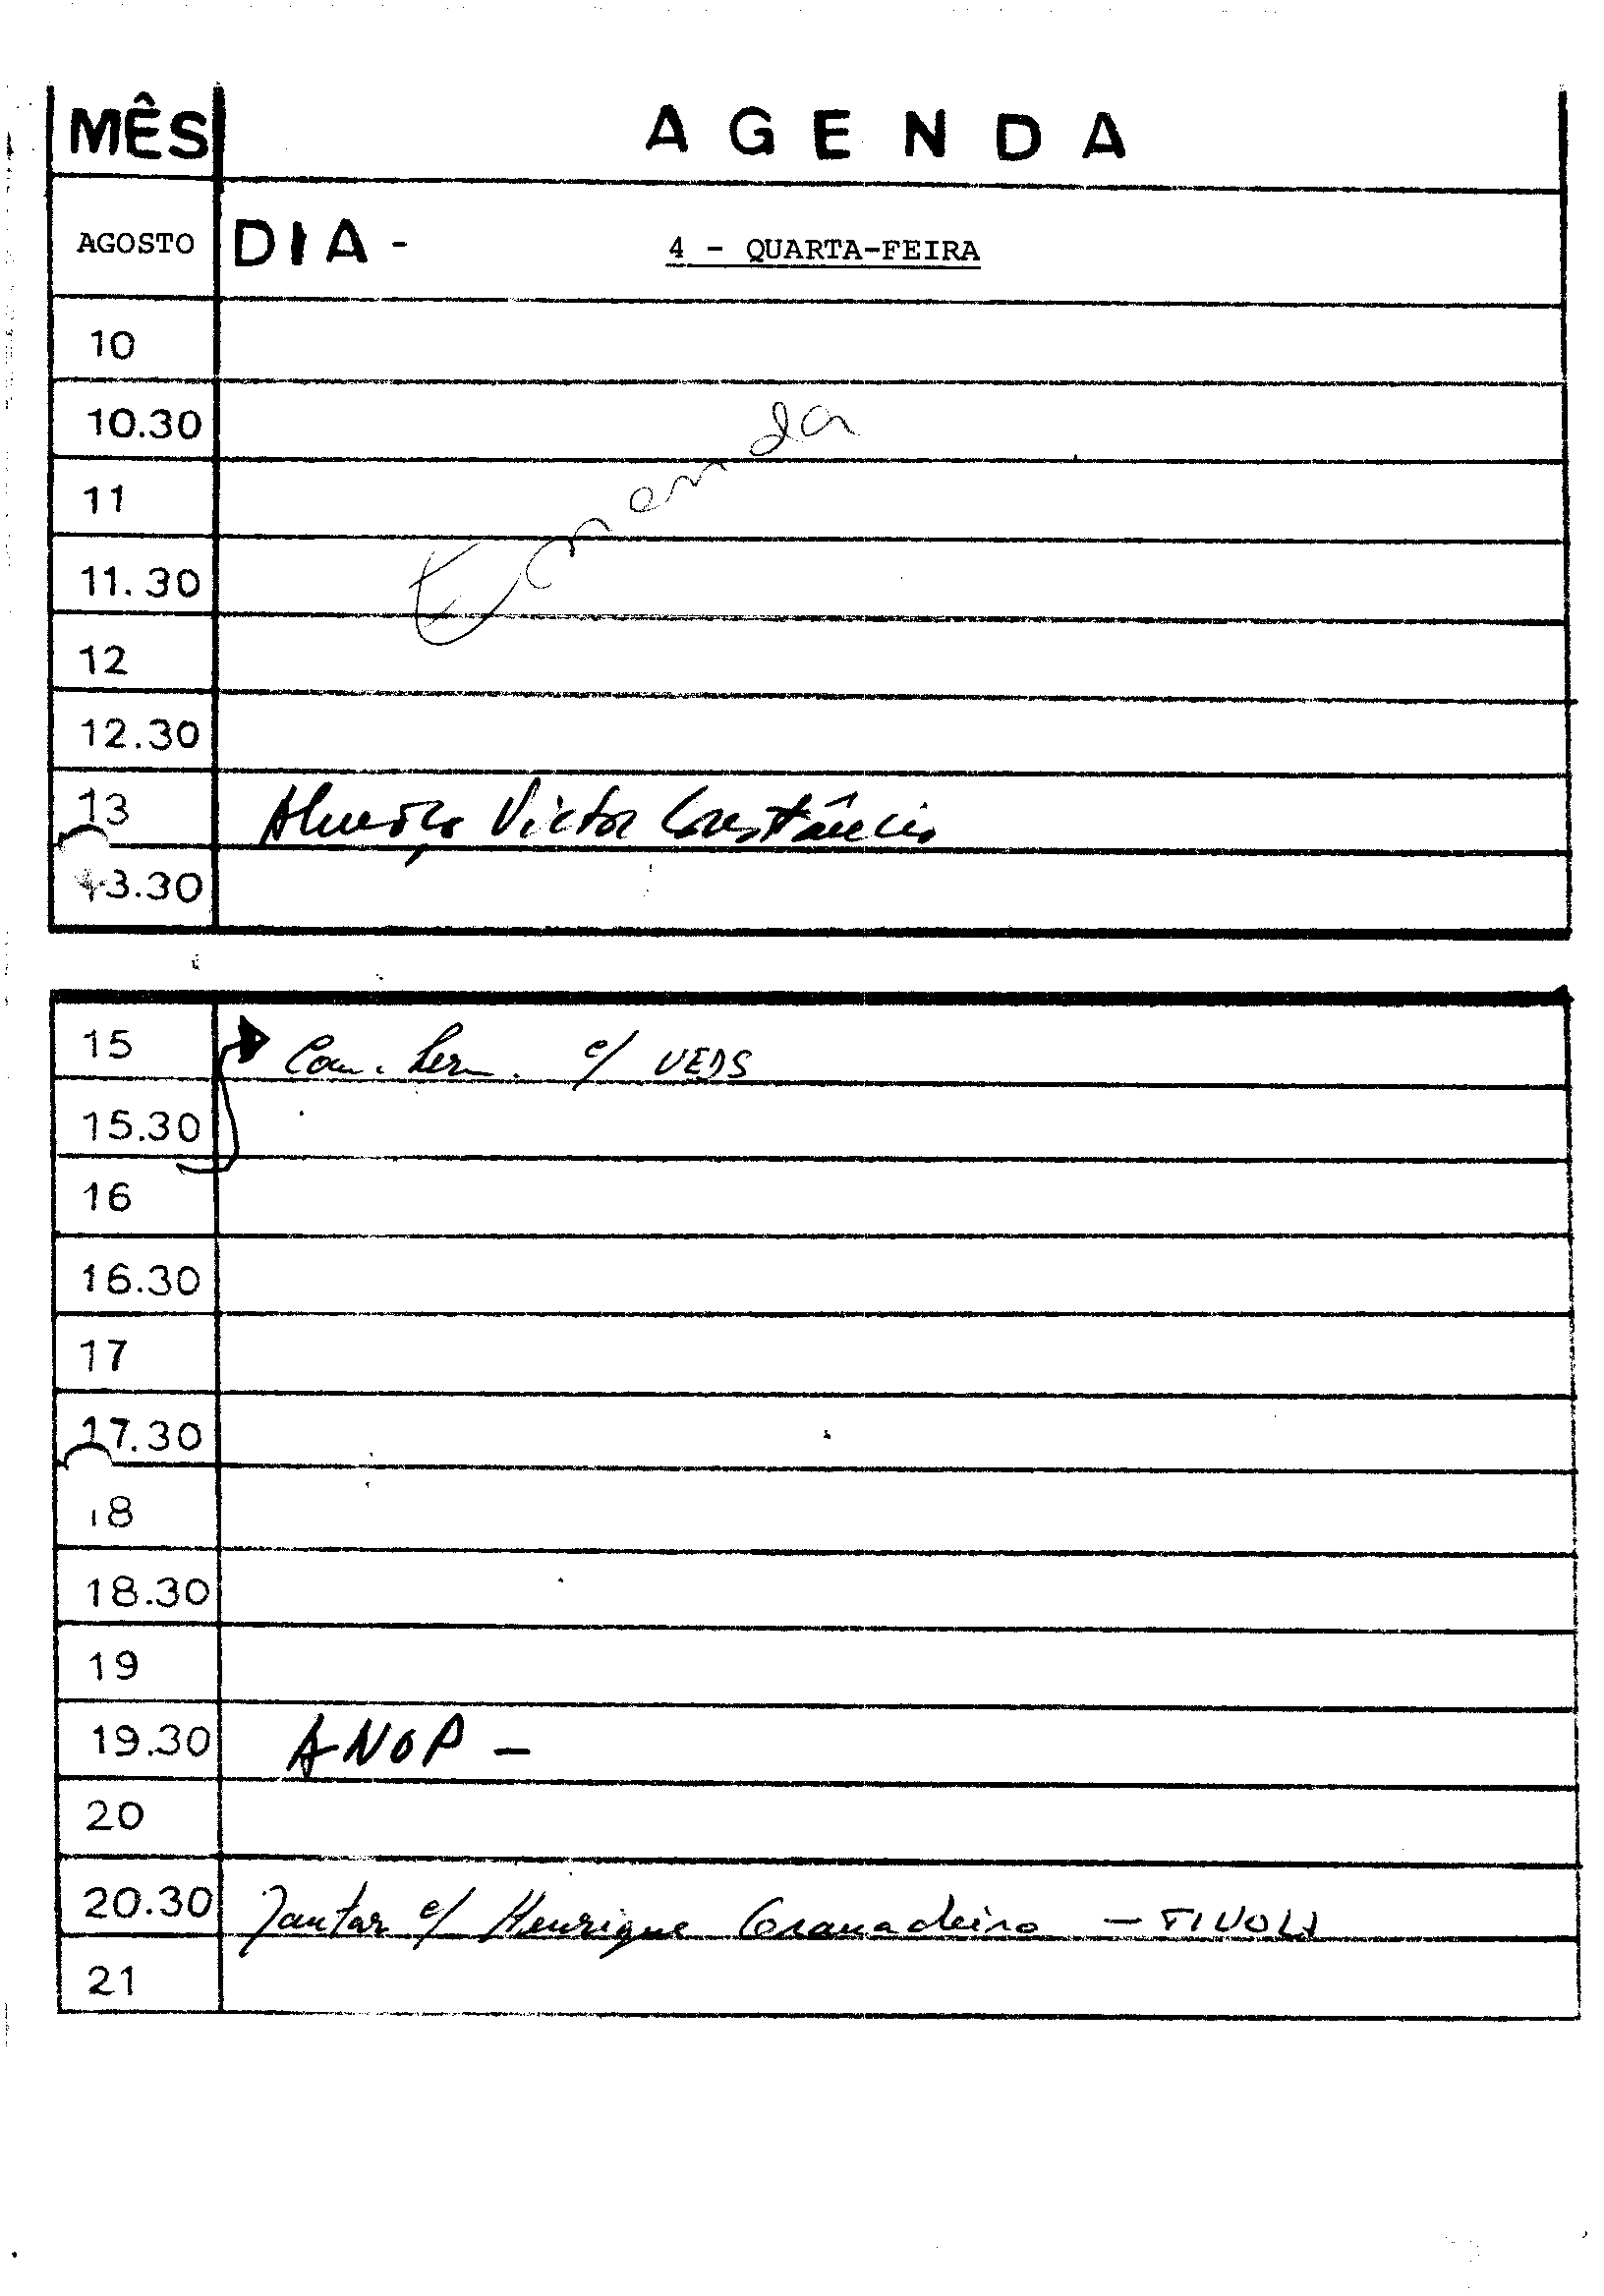 MÊS AGENDA
AGOSTO DIA - 4 - QUARTA-FEIRA
10
10.30
11
11.30
Emenda
12
12.30
13 Almoço Victor Constâncio
13.30
15 Com. Perm. c/ UEDS
15.30
16
16.30
17
17.30
18
18.30
19
19.30 ANOP -
20
20.30 Jantar c/ Henrique Granadeiro - TIVOLI
21